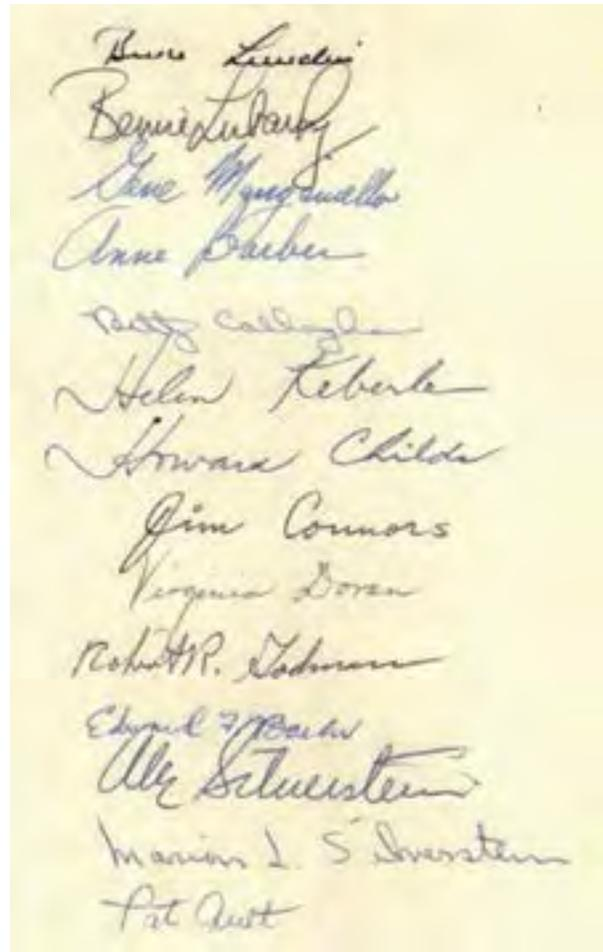 Bruce Lundin
Bernie Lubarsky
Gene Manganiello
Anne Barber
Betty Callaghan
Helen Keberle
Howard Childs
Jim Connors
Virginia Doran
Robert R. Godman
Edward F. Baehr
Abe Silverstein
Marion L. Silverstein
Pat